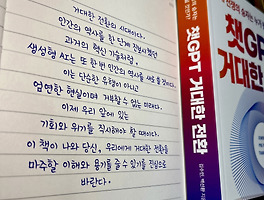 거대한 전환의 시대이다.
인간의 역사를 한 단계 진보시켰던
과거의 혁신 기술처럼,
생성형 AI는 또 한 번 인간의 역사를 새로 쓸 것이다.
이는 단순한 유행이 아닌
엄연한 현실이며 거부할 수 없는 미래다.
이제 우리 앞에 있는
기회와 위기를 직시해야 할 때이다.
이 책이 나와 당신, 우리에게 거대한 전환을
마주할 이해와 용기를 줄 수 있기를 진심으로
바란다.
챗GPT 거대한 전환
챗G
거대한